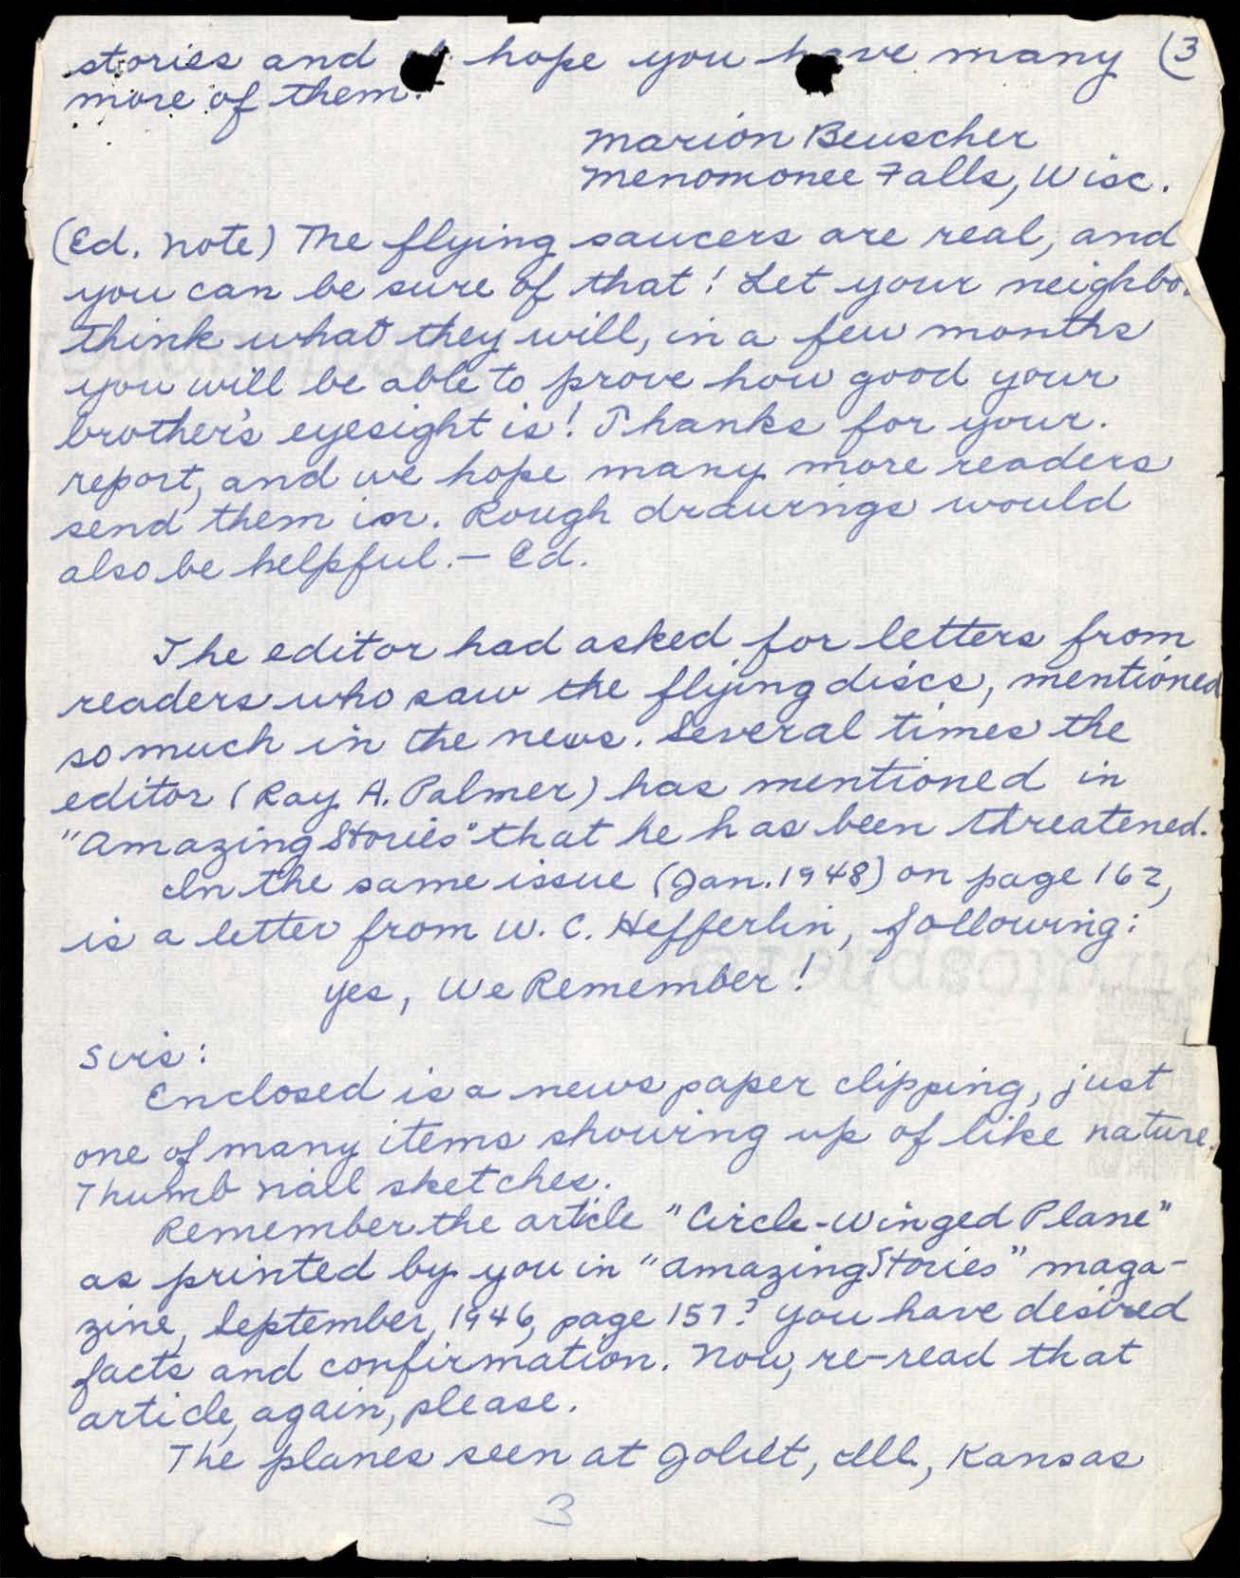 stories and I hope you have many (3
more of them.
Marion Beuscher
Menomonee Falls, Wisc.
(Ed. Note) The flying saucers are real, and
you can be sure of that! Let your neighbo
think what they will, in a few months
you will be able to prove how good your
brother's eyesight is! Thanks for your.
report, and we hope many more readers
send them in. Rough drawings would
also be helpful. - Ed.
The editor had asked for letters from
readers who saw the flying discs, mentioned
so much in the news. Several times the
editor (Ray A. Palmer) has mentioned in
"Amazing Stories" that he has been threatened.
In the same issue (Jan. 1948) on page 162,
is a letter from W. C. Hefferlin, following:
Yes, We Remember!
Sirs:
Enclosed is a newspaper clipping, just
one of many items showing up of like nature.
Thumb nail sketches.
Remember the article "Circle-Winged Plane"
as printed by you in "Amazing Stories" maga-
zine, September, 1946, page 157? You have desired
facts and confirmation. Now, re-read that
article, again, please.
The planes seen at Joliet, Ill., Kansas
3